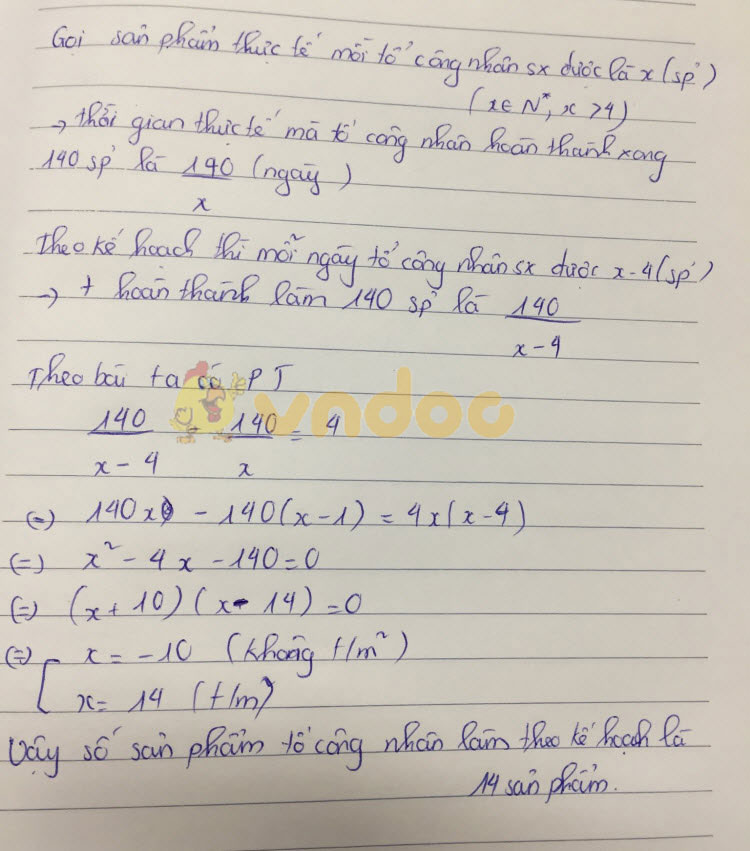 Gọi sản phẩm thực tế mỗi tổ công nhân sx được là x (sp)
(x ∈ N*, x > 4)
→ thời gian thực tế mà tổ công nhân hoàn thành xong
140 sp là 140/x (ngày)
Theo kế hoạch thì mỗi ngày tổ công nhân sx được x-4 (sp)
→ t hoàn thành làm 140 sp là 140/(x-4)
Theo bài ta có PT
vndoc
140/(x-4) - 140/x = 4
(=) 140x - 140(x-1) = 4x(x-4)
(=) x² - 4x - 140 = 0
(=) (x+10)(x-14) = 0
(=) [ x = -10 (không t/m²)
x = 14 (t/m)
Vậy số sản phẩm tổ công nhân làm theo kế hoạch là
14 sản phẩm.